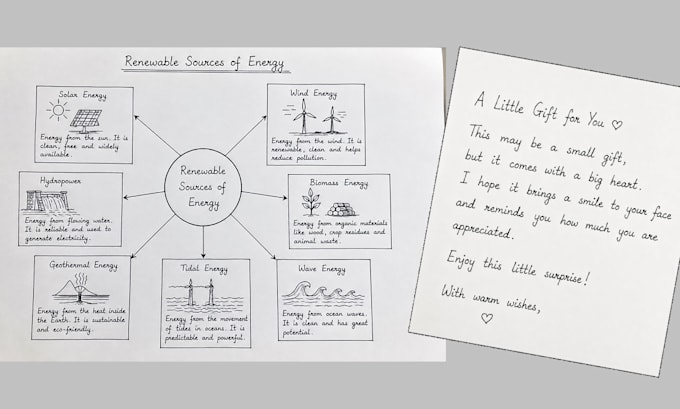 Renewable Sources of Energy
Solar Energy
Energy from the sun. It is
clean, free and widely
available.
Wind Energy
Energy from the wind. It is
renewable, clean and helps
reduce pollution.
Hydropower
Energy from flowing water.
It is reliable and used to
generate electricity.
Renewable
Sources of
Energy
Biomass Energy
Energy from organic materials
like wood, crop residues and
animal waste.
Geothermal Energy
Energy from the heat inside
the Earth. It is sustainable
and eco-friendly.
Tidal Energy
Energy from the movement
of tides in oceans. It is
predictable and powerful.
Wave Energy
Energy from ocean waves.
It is clean and has great
potential.
A Little Gift for You ♡
This may be a small gift,
but it comes with a big heart.
I hope it brings a smile to your face
and reminds you how much you are
appreciated.
Enjoy this little surprise!
With warm wishes,
♡